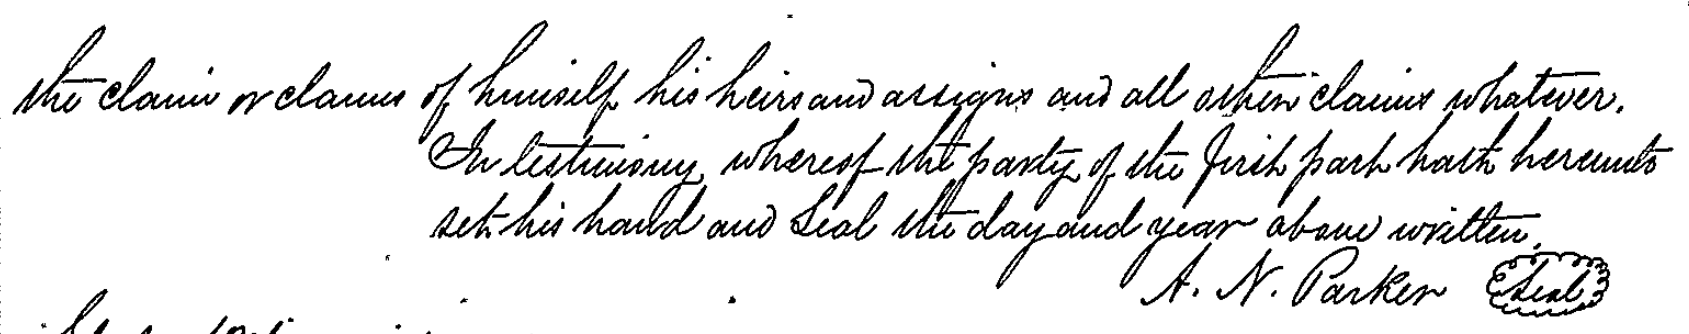 the claim or claims of himself his heirs and assigns and all other claims whatever.
In testimony whereof the party of the first part hath hereunto
set his hand and Seal the day and year above written.
A. N. Parker Seal